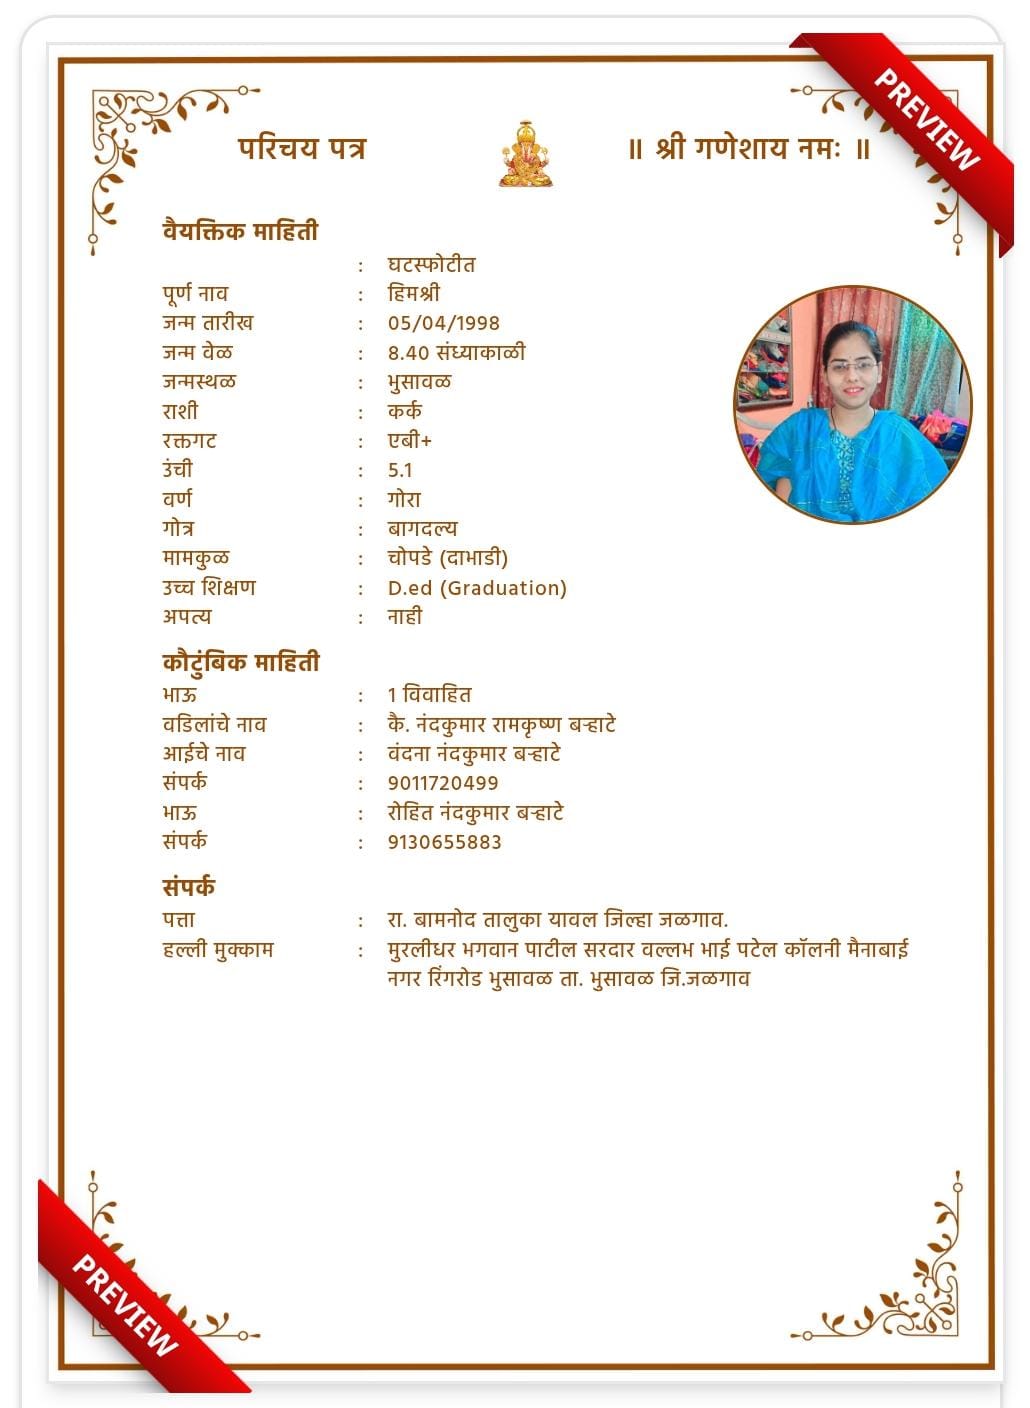 परिचय पत्र
॥ श्री गणेशाय नमः ॥
PREVIEW
वैयक्तिक माहिती
: घटस्फोटीत
पूर्ण नाव : हिमश्री
जन्म तारीख : 05/04/1998
जन्म वेळ : 8.40 संध्याकाळी
जन्मस्थळ : भुसावळ
राशी : कर्क
रक्तगट : एबी+
उंची : 5.1
वर्ण : गोरा
गोत्र : बागदल्य
मामकुळ : चोपडे (दाभाडी)
उच्च शिक्षण : D.ed (Graduation)
अपत्य : नाही
कौटुंबिक माहिती
भाऊ : 1 विवाहित
वडिलांचे नाव : कै. नंदकुमार रामकृष्ण बऱ्हाटे
आईचे नाव : वंदना नंदकुमार बऱ्हाटे
संपर्क : 9011720499
भाऊ : रोहित नंदकुमार बऱ्हाटे
संपर्क : 9130655883
संपर्क
पत्ता : रा. बामनोद तालुका यावल जिल्हा जळगाव.
हल्ली मुक्काम : मुरलीधर भगवान पाटील सरदार वल्लभ भाई पटेल कॉलनी मैनाबाई
नगर रिंगरोड भुसावळ ता. भुसावळ जि.जळगाव
PREVIEW